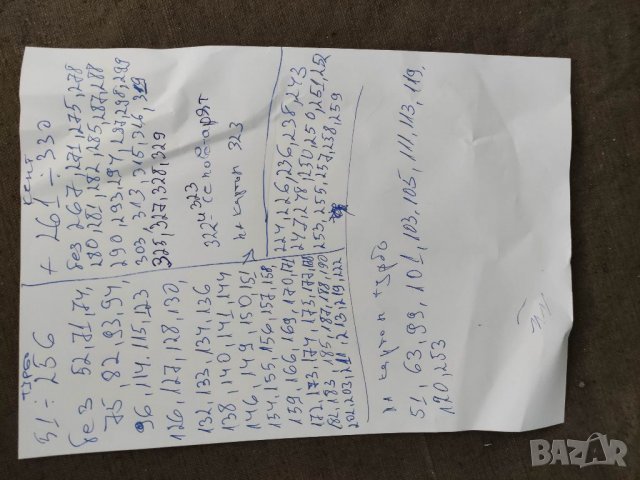 турбо
51 ÷ 256
без 52, 71, 74,
75, 82, 93, 94,
96, 114, 115, 123
126, 127, 128, 130
132, 133, 134, 136,
138, 140, 141, 144
146, 149, 150, 151
154, 155, 156, 157, 158,
159, 166, 169, 170, 171
172, 173, 174, 175, 177, 180
182, 183, 185, 187, 188, 190
202, 203, 211, 213, 219, 222
224, 226, 236, 238, 243
247, 248, 250, 250, 251, 252
253, 255, 257, 258, 259
+ 261 ÷ 330
без 267, 271, 275, 278
280, 281, 282, 285, 287, 288
290, 293, 294, 297, 298, 299
303, 313, 315, 316, 319
325, 327, 328, 329
322 и 323
се повтарят
на картон 323
на картон турбо
51, 63, 99, 101, 103, 105, 111, 113, 119,
120, 253
BAZAR
bg